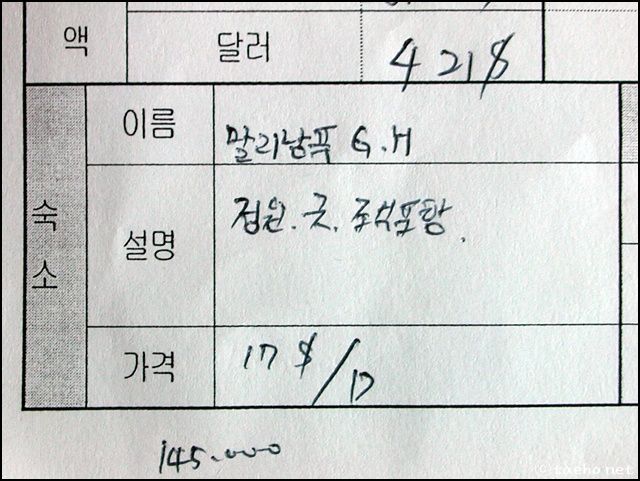 액 달러 421$
이름 말리남푸 G.H
숙소 설명 정원. 굿. 조식포함.
가격 17$/1D
145.000
© toeho net